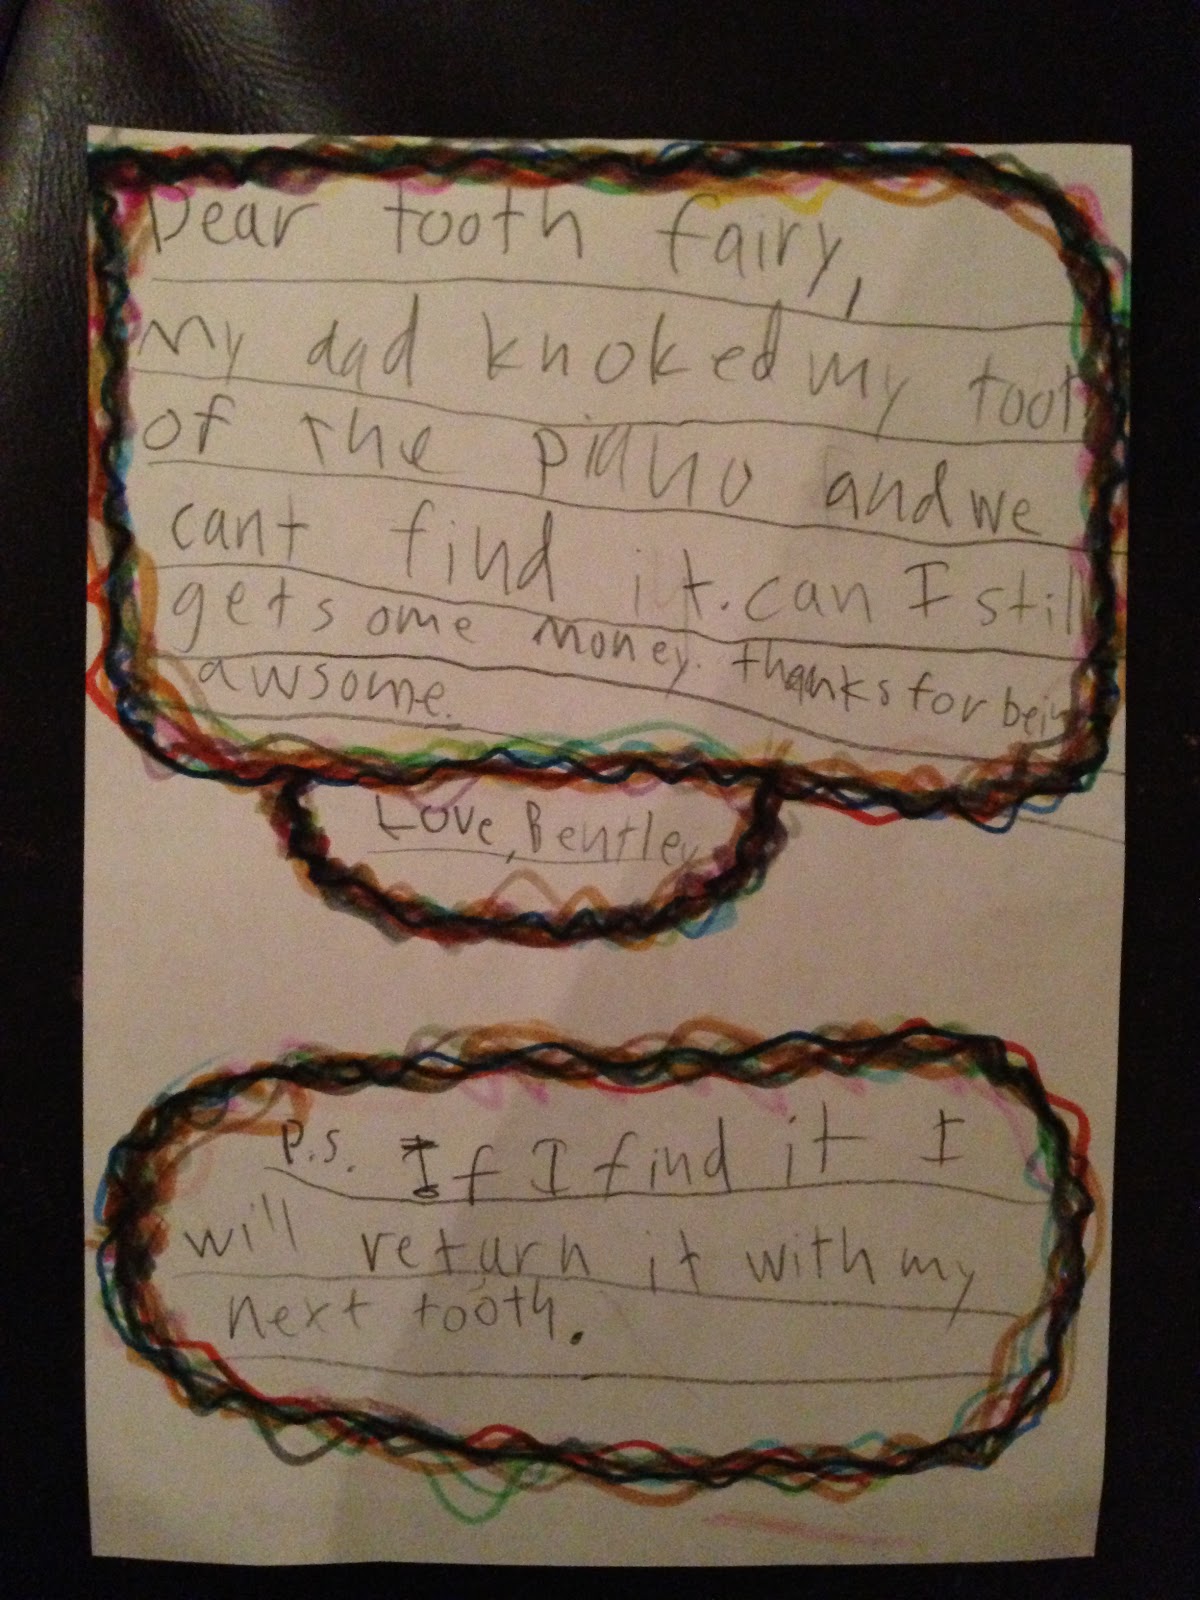 Dear tooth fairy,
My dad knoked my tooth
of the piano and we
cant find it. can I still
get some money. thanks for being
awsome.
Love, Bentley
p.s. If I find it I
will return it with my
next tooth.